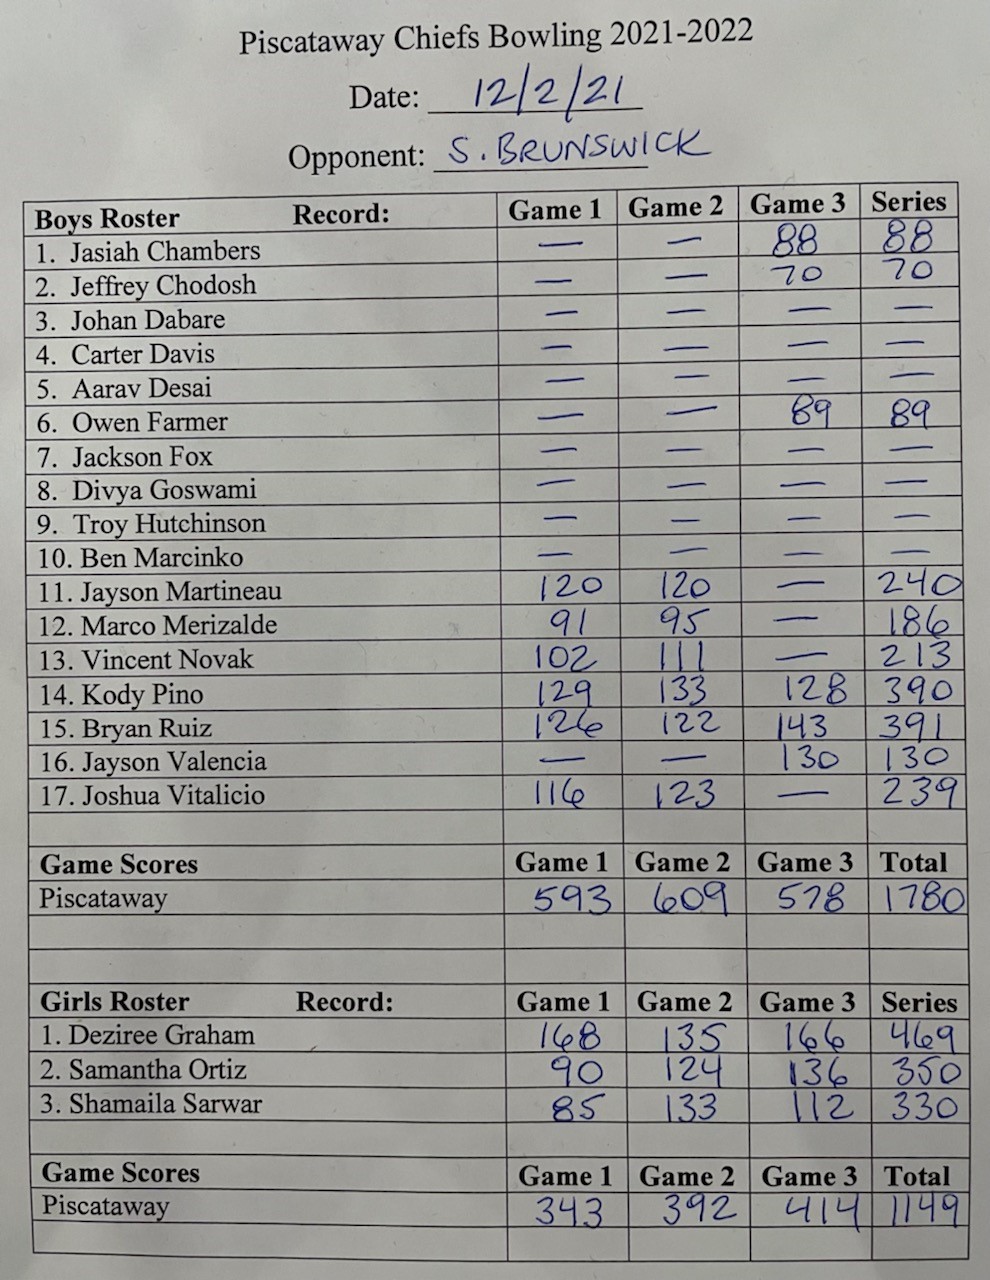 Piscataway Chiefs Bowling 2021-2022
Date: 12/2/21
Opponent: S. BRUNSWICK
Boys Roster Record: Game 1 Game 2 Game 3 Series
1. Jasiah Chambers — — 88 88
2. Jeffrey Chodosh — — 70 70
3. Johan Dabare — — — —
4. Carter Davis — — — —
5. Aarav Desai — — — —
6. Owen Farmer — — 89 89
7. Jackson Fox — — — —
8. Divya Goswami — — — —
9. Troy Hutchinson — — — —
10. Ben Marcinko — — — —
11. Jayson Martineau 120 120 — 240
12. Marco Merizalde 91 95 — 186
13. Vincent Novak 102 111 — 213
14. Kody Pino 129 133 128 390
15. Bryan Ruiz 126 122 143 391
16. Jayson Valencia — — 130 130
17. Joshua Vitalicio 116 123 — 239
Game Scores Game 1 Game 2 Game 3 Total
Piscataway 593 609 578 1780
Girls Roster Record: Game 1 Game 2 Game 3 Series
1. Deziree Graham 168 135 166 469
2. Samantha Ortiz 90 124 136 350
3. Shamaila Sarwar 85 133 112 330
Game Scores Game 1 Game 2 Game 3 Total
Piscataway 343 392 414 1149